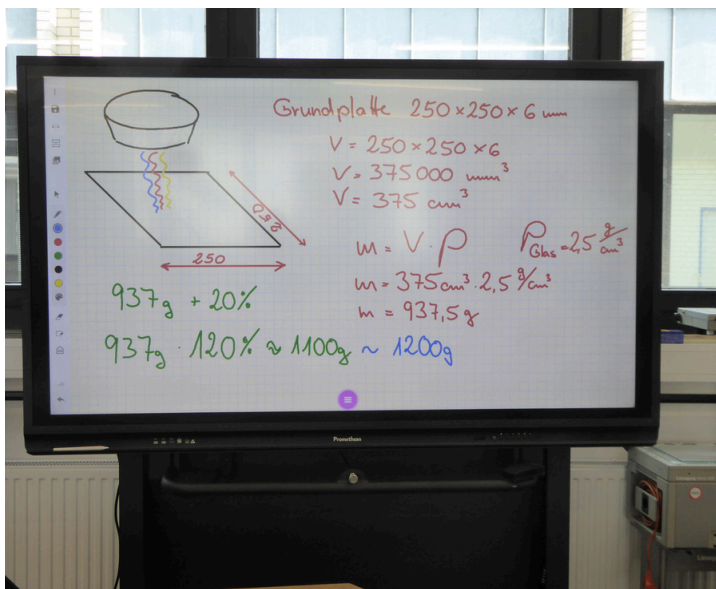 Grundplatte 250×250×6 mm
V = 250×250×6
V = 375000 mm³
V = 375 cm³
250
250
m = V · ρ
ρGlas = 2,5 g/cm³
m = 375cm³ · 2,5 g/cm³
m = 937,5g
937g + 20%
937g · 120% ≈ 1100g ~ 1200g
Promethean